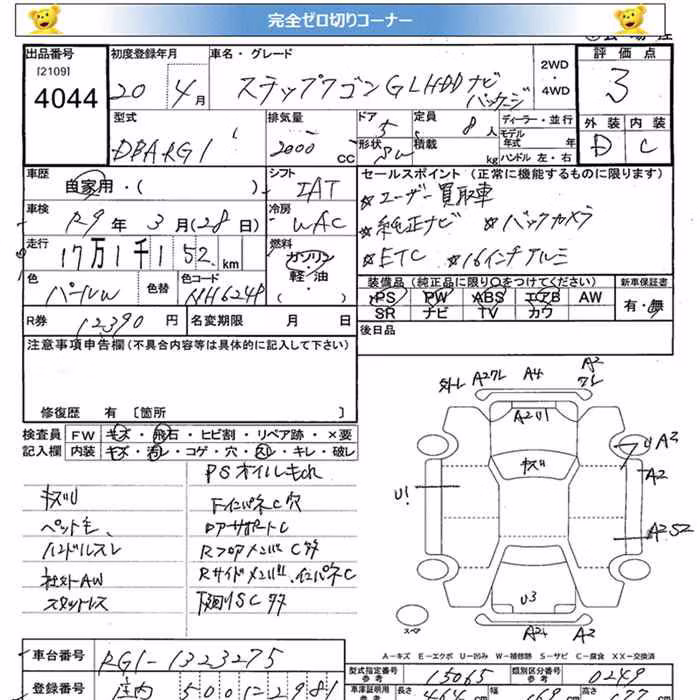 完全ゼロ切りコーナー
出品番号 初度登録年月 車名・グレード 評価点
[2109]
4044 20 4月 ステップワゴン GLHDDナビパッケージ 2WD・4WD 3
型式 排気量 ドア 定員 ディーラー・並行 外装 内装
DBARG1 2000 CC 5 8人 モデル年式 年式 D C
形状 SW 積載 kg ハンドル 左・右
車歴 自家用・( ) シフト IAT セールスポイント (正常に機能するものに限ります)
☆ユーザー買取車
車検 R9年 3月(28日) 冷房 WAC ☆純正ナビ ☆バックカメラ
走行 17万1千152 km 燃料 ガソリン・軽・油 ( ) ☆ETC ☆16インチアルミ
色 パールW 色替 色コード NH624P 装備品 (純正品に限り○をつけてください) 新車保証書
PS PW ABS エアB AW 有・無
SR ナビ TV カワ
R券 12390円 名変期限 月 日 後日品
注意事項申告欄(不具合内容等は具体的に記入して下さい)
修復歴 有 [箇所 ]
検査員 FW キズ・飛石・ヒビ割・リペア跡・×要
記入欄 内装 キズ・汚レ・コゲ・穴・スレ・キレ・破レ
PSオイルモレ
キズU FインパネC穴
ペット毛 ロアーサポートC
ハンドルスレ RフロアメンバC
社外AW Rサイドメンバ、インパネC
スタットレス 下廻りSC
A27L A4 A2
A2U1
キズ
A2
U1 A2
A2S2
U3
A24 A2
スペア
A-キズ E-エクボ U-凹み W-補修跡 S-サビ C-腐食 XX-交換済
車台番号 RG1-1323275 型式指定番号 参考 15065 類別区分番号 参考 0249
登録番号 庄内 500 車庫証明用 参考 長さ 幅 高さ